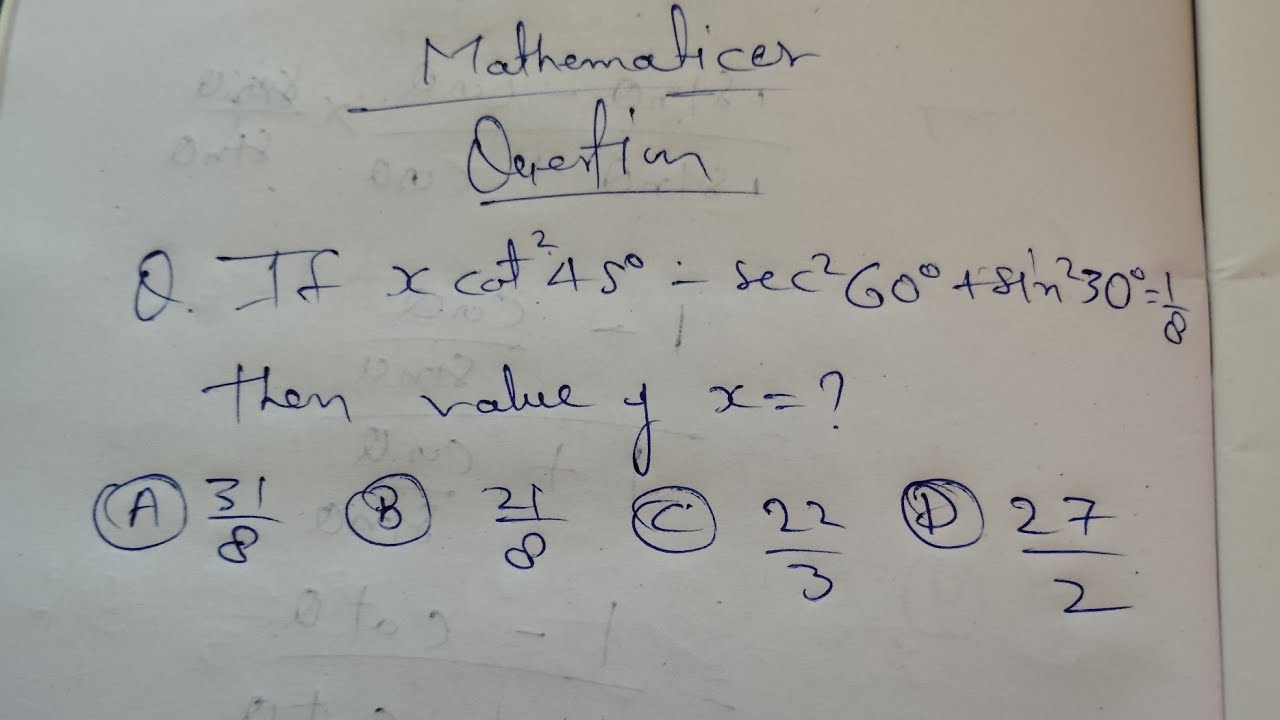 Mathematices
Question
Q. If x cot²45° - sec²60° + sin²30° = 1/8
then value of x = ?
(A) 31/8 (B) 21/8 (C) 22/3 (D) 27/2